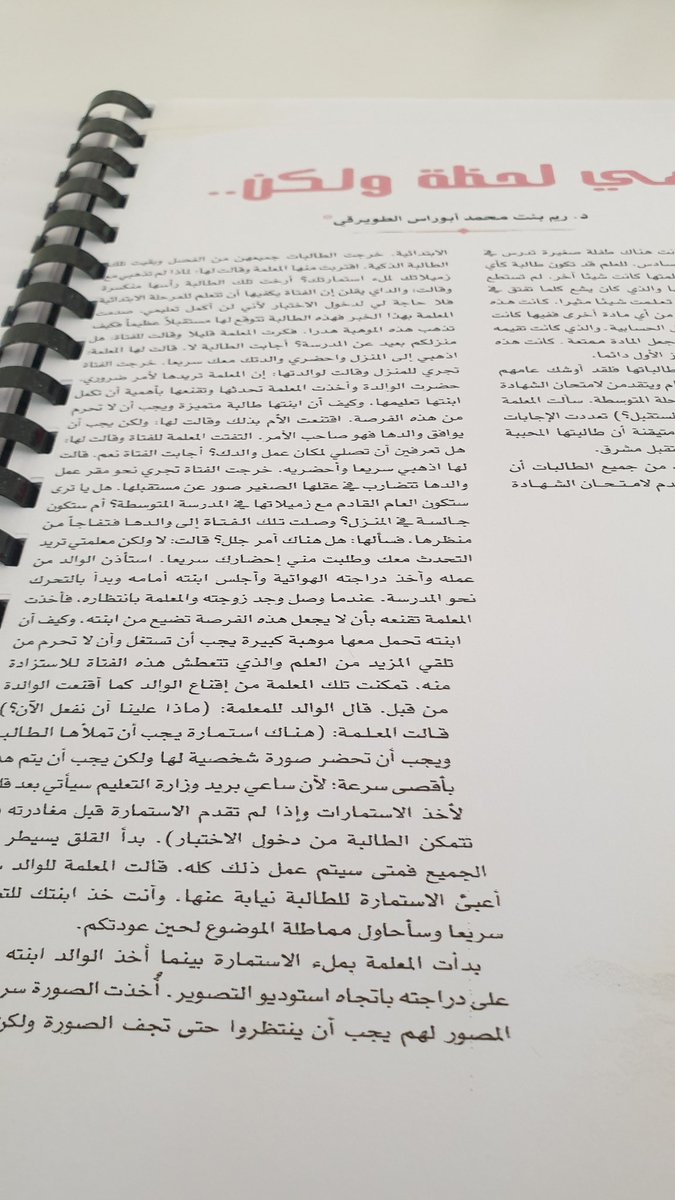 لحظة ولكن..
د. ريم بنت محمد أبوراس الطويرقي
هناك طفلة صغيرة تدرس في
سادس. للعلم قد تكون طالبة كأي
كانت شيئا آخر. لم تستطع
والذي كان يشع كلما تفتق في
تعلمت شيئا مثيرا. كانت هذه
من أي مادة أخرى ففيها كانت
الحسابية. والذي كانت تقيمه
جعل المادة ممتعة. كانت هذه
الأول دائما.
طالباتها فلقد أوشك عامهم
ويتقدمن لامتحان الشهادة
المتوسطة. سألت المعلمة
تعددت الإجابات
متيقنة أن طالبتها المحببة
مشرق.
من جميع الطالبات أن
لامتحان الشهادة
الابتدائية. خرجت الطالبات جميعهن من الفصل وبقيت تلك
الطالبة الذكية. اقتربت منها المعلمة وقالت لها: لماذا لم تذهبي مع
زميلاتك لملء استمارتك؟ أرخت تلك الطالبة رأسها منكسرة
وقالت: والداي يقلن إن الفتاة يكفيها أن تتعلم للمرحلة الابتدائية
فلا حاجة لي لدخول الاختبار لأني لن أكمل تعليمي. صدمت
المعلمة بهذا الخبر فهذه الطالبة تتوقع لها مستقبلاً عظيماً فكيف
تذهب هذه الموهبة هدرا. فكرت المعلمة قليلا وقالت للفتاة: هل
منزلكم بعيد عن المدرسة؟ أجابت الطالبة لا. قالت لها المعلمة:
اذهبي إلى المنزل واحضري والدتك معك سريعا. خرجت الفتاة
تجري للمنزل وقالت لوالدتها: إن المعلمة تريدها لأمر ضروري.
حضرت الوالدة وأخذت المعلمة تحدثها وتقنعها بأهمية أن تكمل
ابنتها تعليمها. وكيف أن ابنتها طالبة متميزة ويجب أن لا تحرم
من هذه الفرصة. اقتنعت الأم بذلك وقالت لها: ولكن يجب أن
يوافق والدها فهو صاحب الأمر. التفتت المعلمة للفتاة وقالت لها:
هل تعرفين أن تصلي لمكان عمل والدك؟ أجابت الفتاة نعم. قالت
لها اذهبي سريعا وأحضريه. خرجت الفتاة تجري نحو مقر عمل
والدها تتضارب في عقلها الصغير صور عن مستقبلها. هل يا ترى
ستكون العام القادم مع زميلاتها في المدرسة المتوسطة؟ أم ستكون
جالسة في المنزل؟ وصلت تلك الفتاة إلى والدها فتفاجأ من
منظرها. فسألها: هل هناك أمر جلل؟ قالت: لا ولكن معلمتي تريد
التحدث معك وطلبت مني إحضارك سريعا. استأذن الوالد من
عمله وأخذ دراجته الهوائية وأجلس ابنته أمامه وبدأ بالتحرك
نحو المدرسة. عندما وصل وجد زوجته والمعلمة بانتظاره. فأخذت
المعلمة تقنعه بأن لا يجعل هذه الفرصة تضيع من ابنته. وكيف أن
ابنته تحمل معها موهبة كبيرة يجب أن تستغل وأن لا تحرم من
تلقي المزيد من العلم والذي تتعطش هذه الفتاة للاستزادة
منه. تمكنت تلك المعلمة من إقناع الوالد كما أقنعت الوالدة
من قبل. قال الوالد للمعلمة: (ماذا علينا أن نفعل الآن؟)
قالت المعلمة: (هناك استمارة يجب أن تملأها
ويجب أن تحضر صورة شخصية لها ولكن يجب أن يتم
بأقصى سرعة: لأن ساعي بريد وزارة التعليم سيأتي بعد
لأخذ الاستمارات وإذا لم تقدم الاستمارة قبل مغادرته
تتمكن الطالبة من دخول الاختبار). بدأ القلق يسيطر
الجميع فمتى سيتم عمل ذلك كله. قالت المعلمة للوالد
أعبئ الاستمارة للطالبة نيابة عنها. وأنت خذ ابنتك
سريعا وسأحاول مماطلة الموضوع لحين عودتكم.
بدأت المعلمة بملء الاستمارة بينما أخذ الوالد ابنته
على دراجته باتجاه استوديو التصوير. أُخذت الصورة
المصور لهم يجب أن ينتظروا حتى تجف الصورة